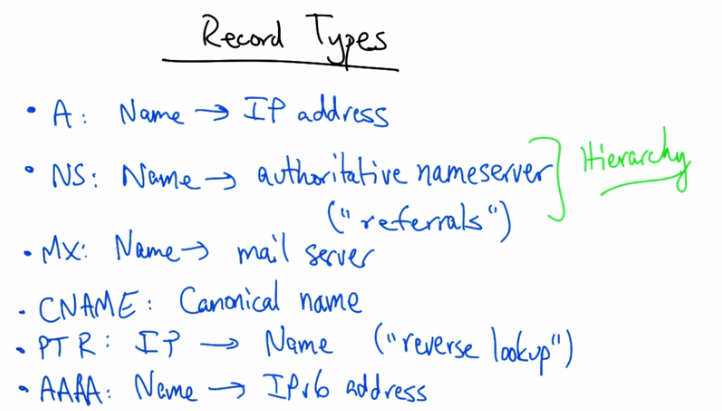 Record Types
• A: Name → IP address
• NS: Name → authoritative nameserver
("referrals")
Hierarchy
• MX: Name → mail server
• CNAME: Canonical name
• PTR: IP → Name ("reverse lookup")
• AAAA: Name → IPv6 address